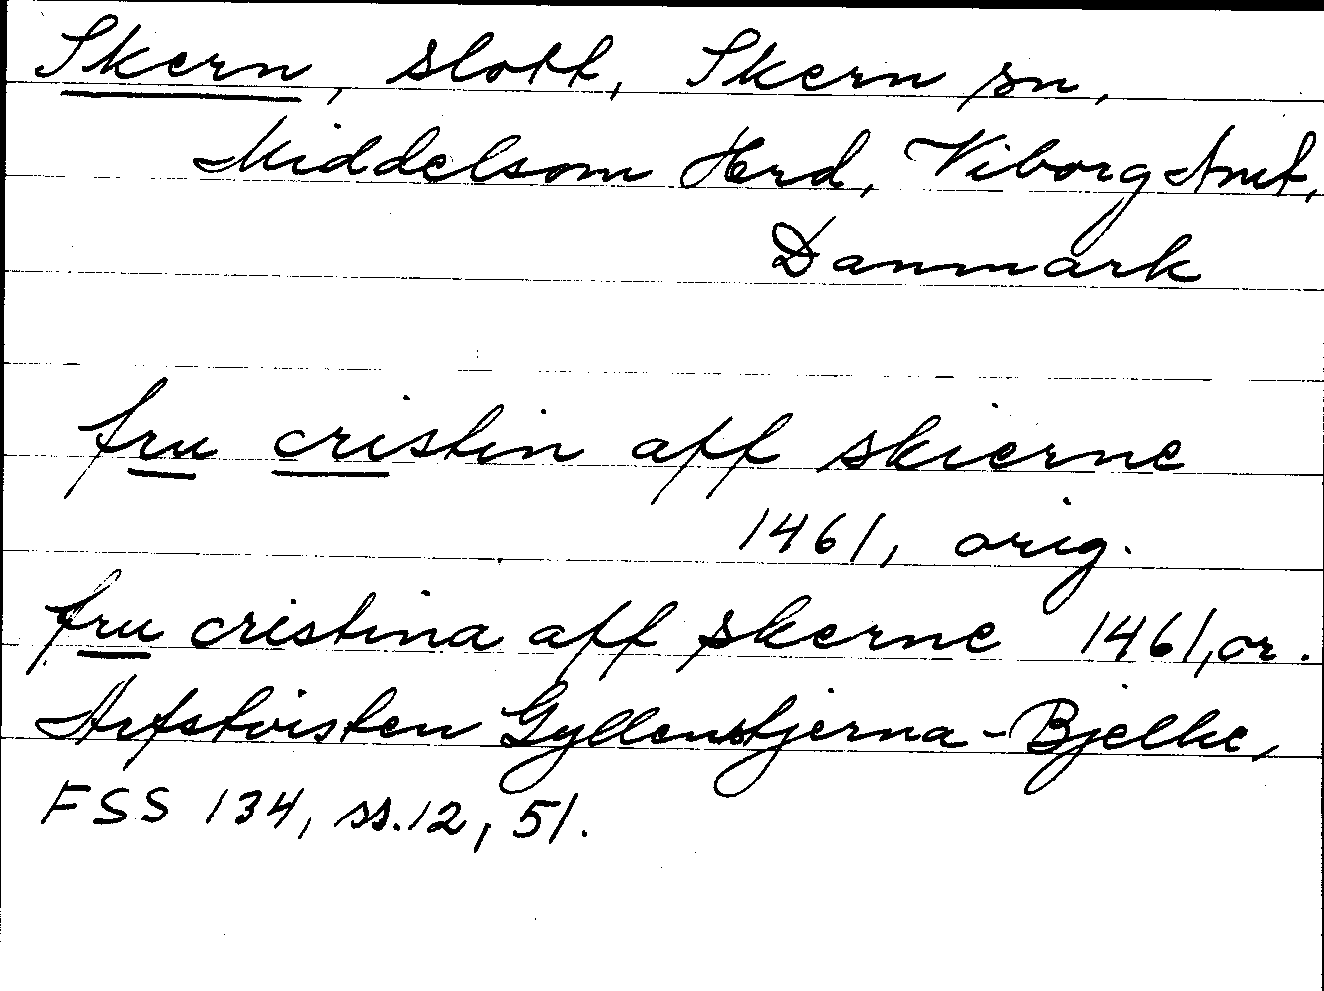 Skern, slott, Skern sn,
Middelsom Herd, Viborg Amt,
Danmark
fru cristin aff skierne
1461, orig.
fru cristina aff skerne 1461, or.
Arfstvisten Gyllenstjerna-Bjelke,
FSS 134, ss. 12, 51.